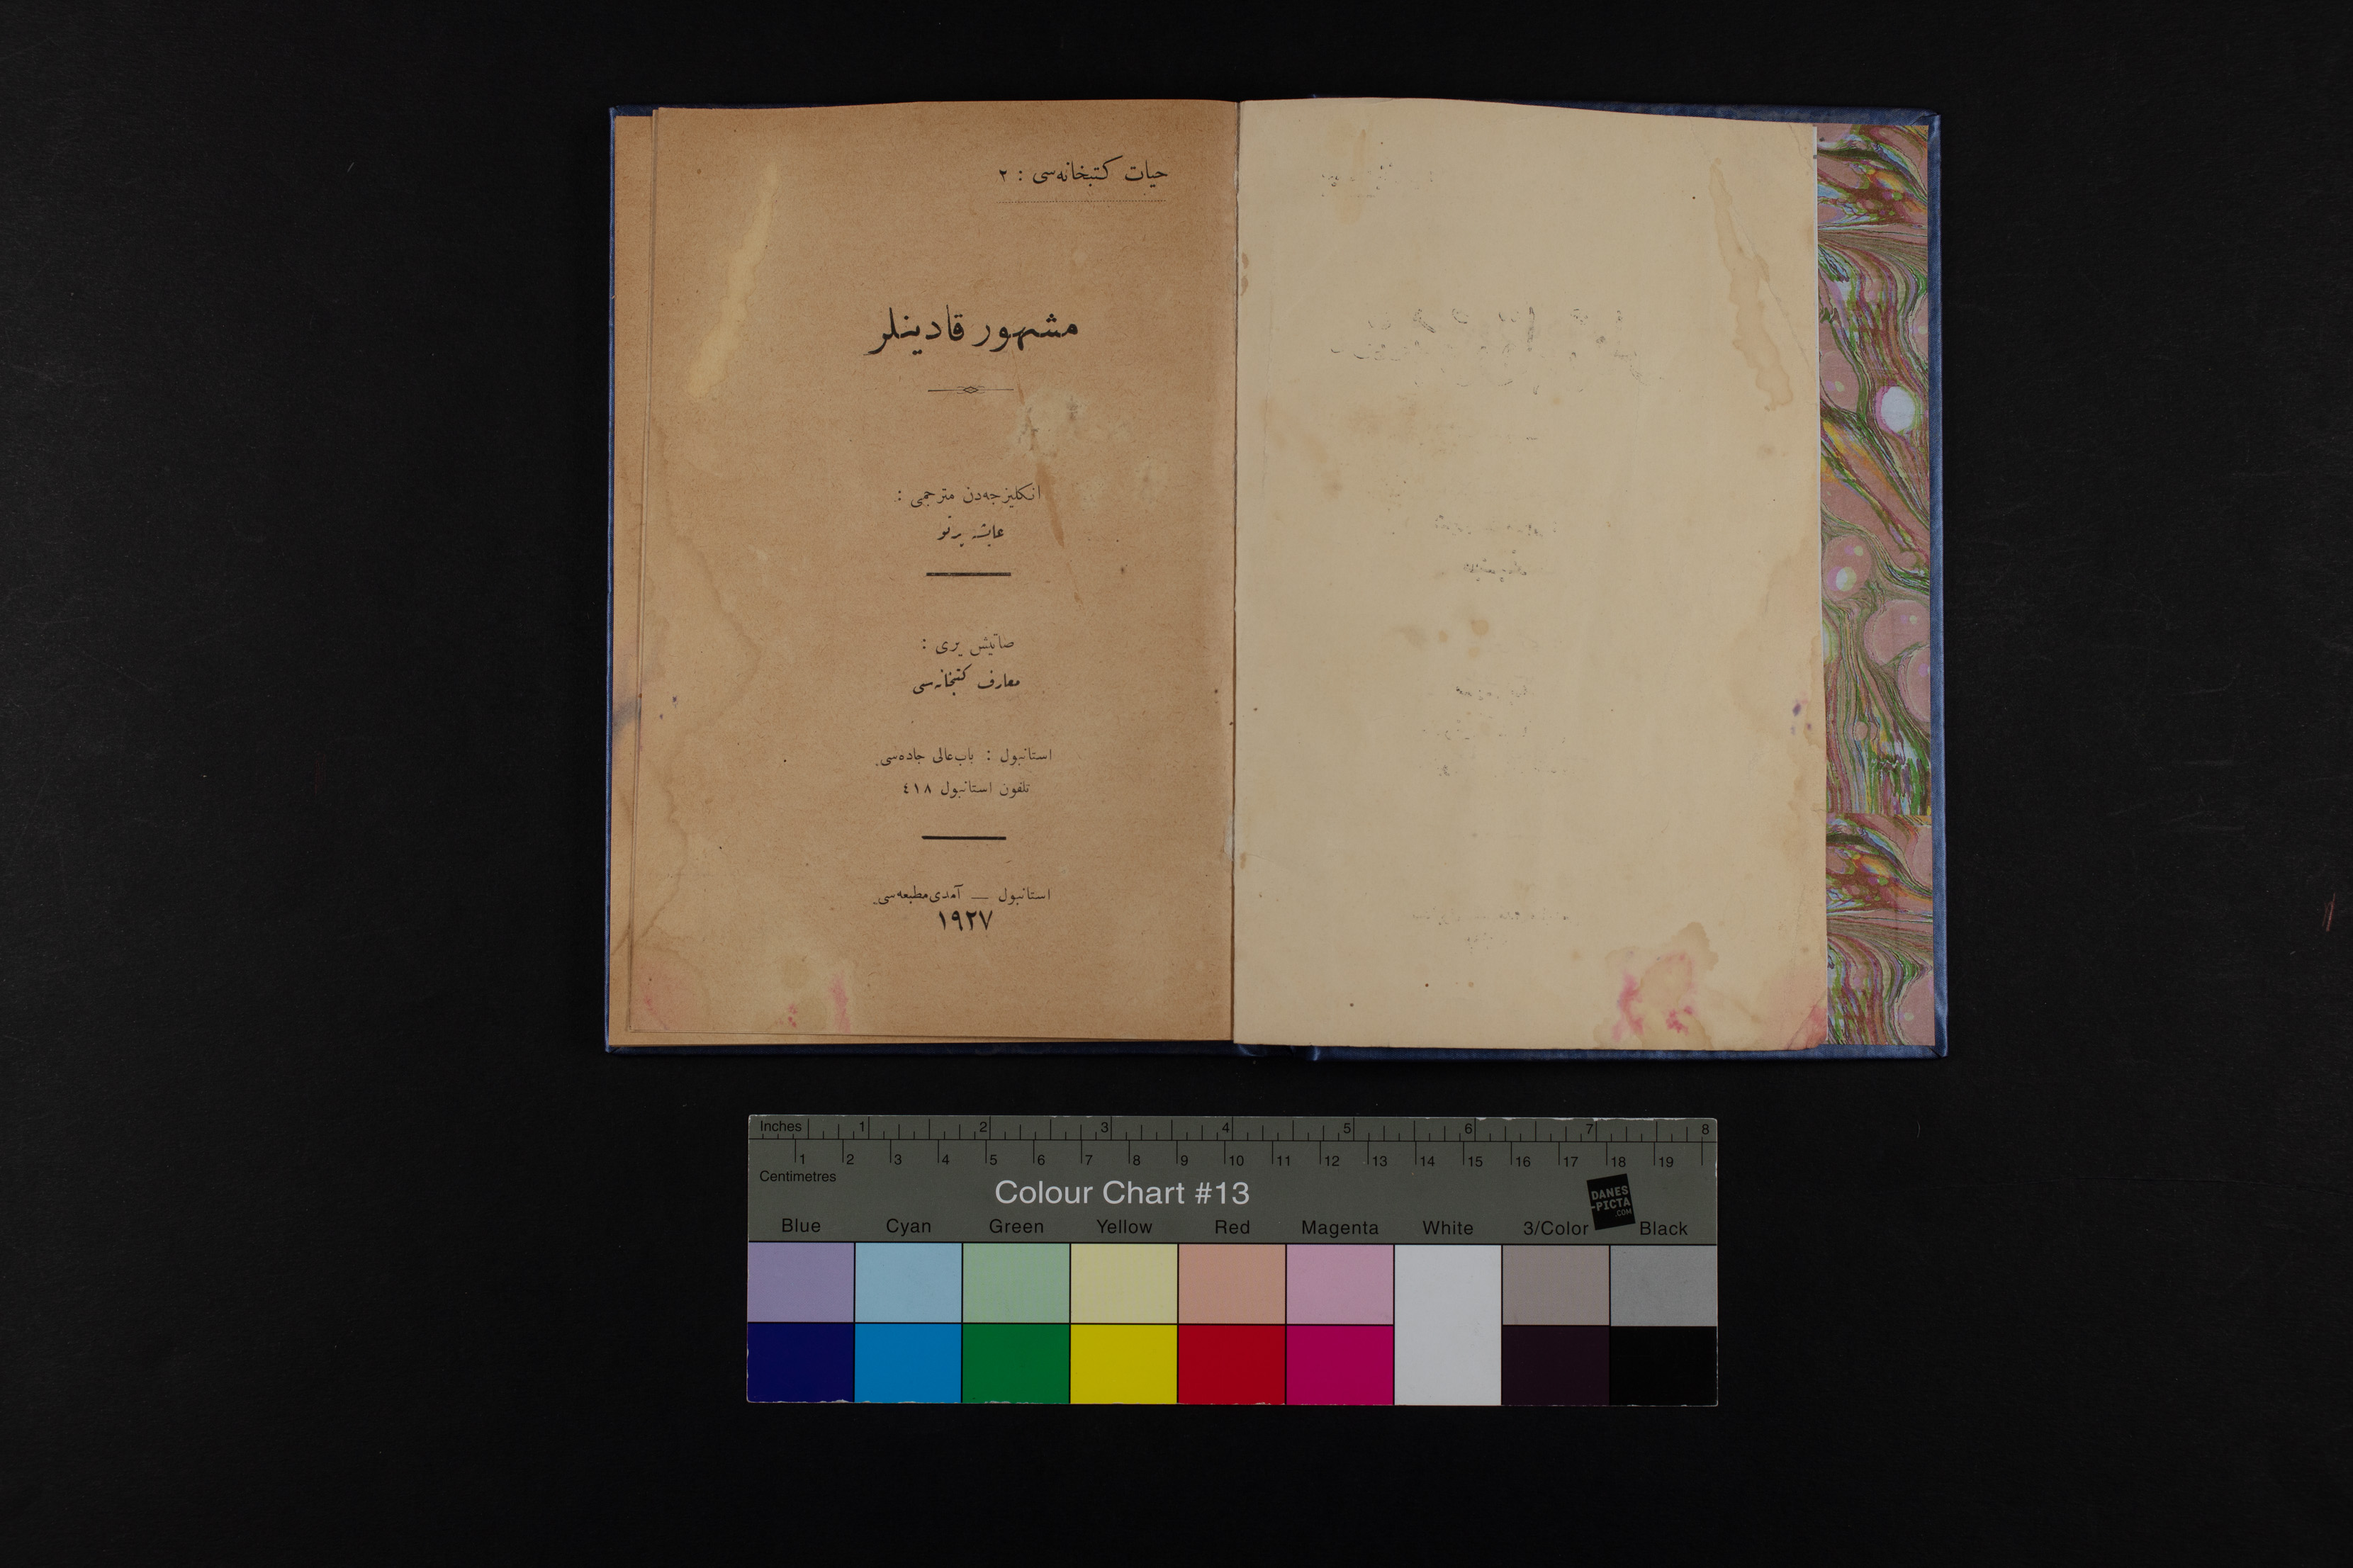 حيات كتبخانه‌سی : ٢
مشهور قادينلر
انكليزجه‌دن مترجمی :
عائشه پرتو
صاتيش يری :
معارف كتبخانه‌سی
استانبول : باب‌عالی جاده‌سی
تلفون استانبول ٤١٨
استانبول — آمدی مطبعه‌سی
١٩٢٧
Inches 1 2 3 4 5 6 7 8
1 2 3 4 5 6 7 8 9 10 11 12 13 14 15 16 17 18 19
Centimetres
Colour Chart #13
DANES
-PICTA
.COM
Blue Cyan Green Yellow Red Magenta White 3/Color Black